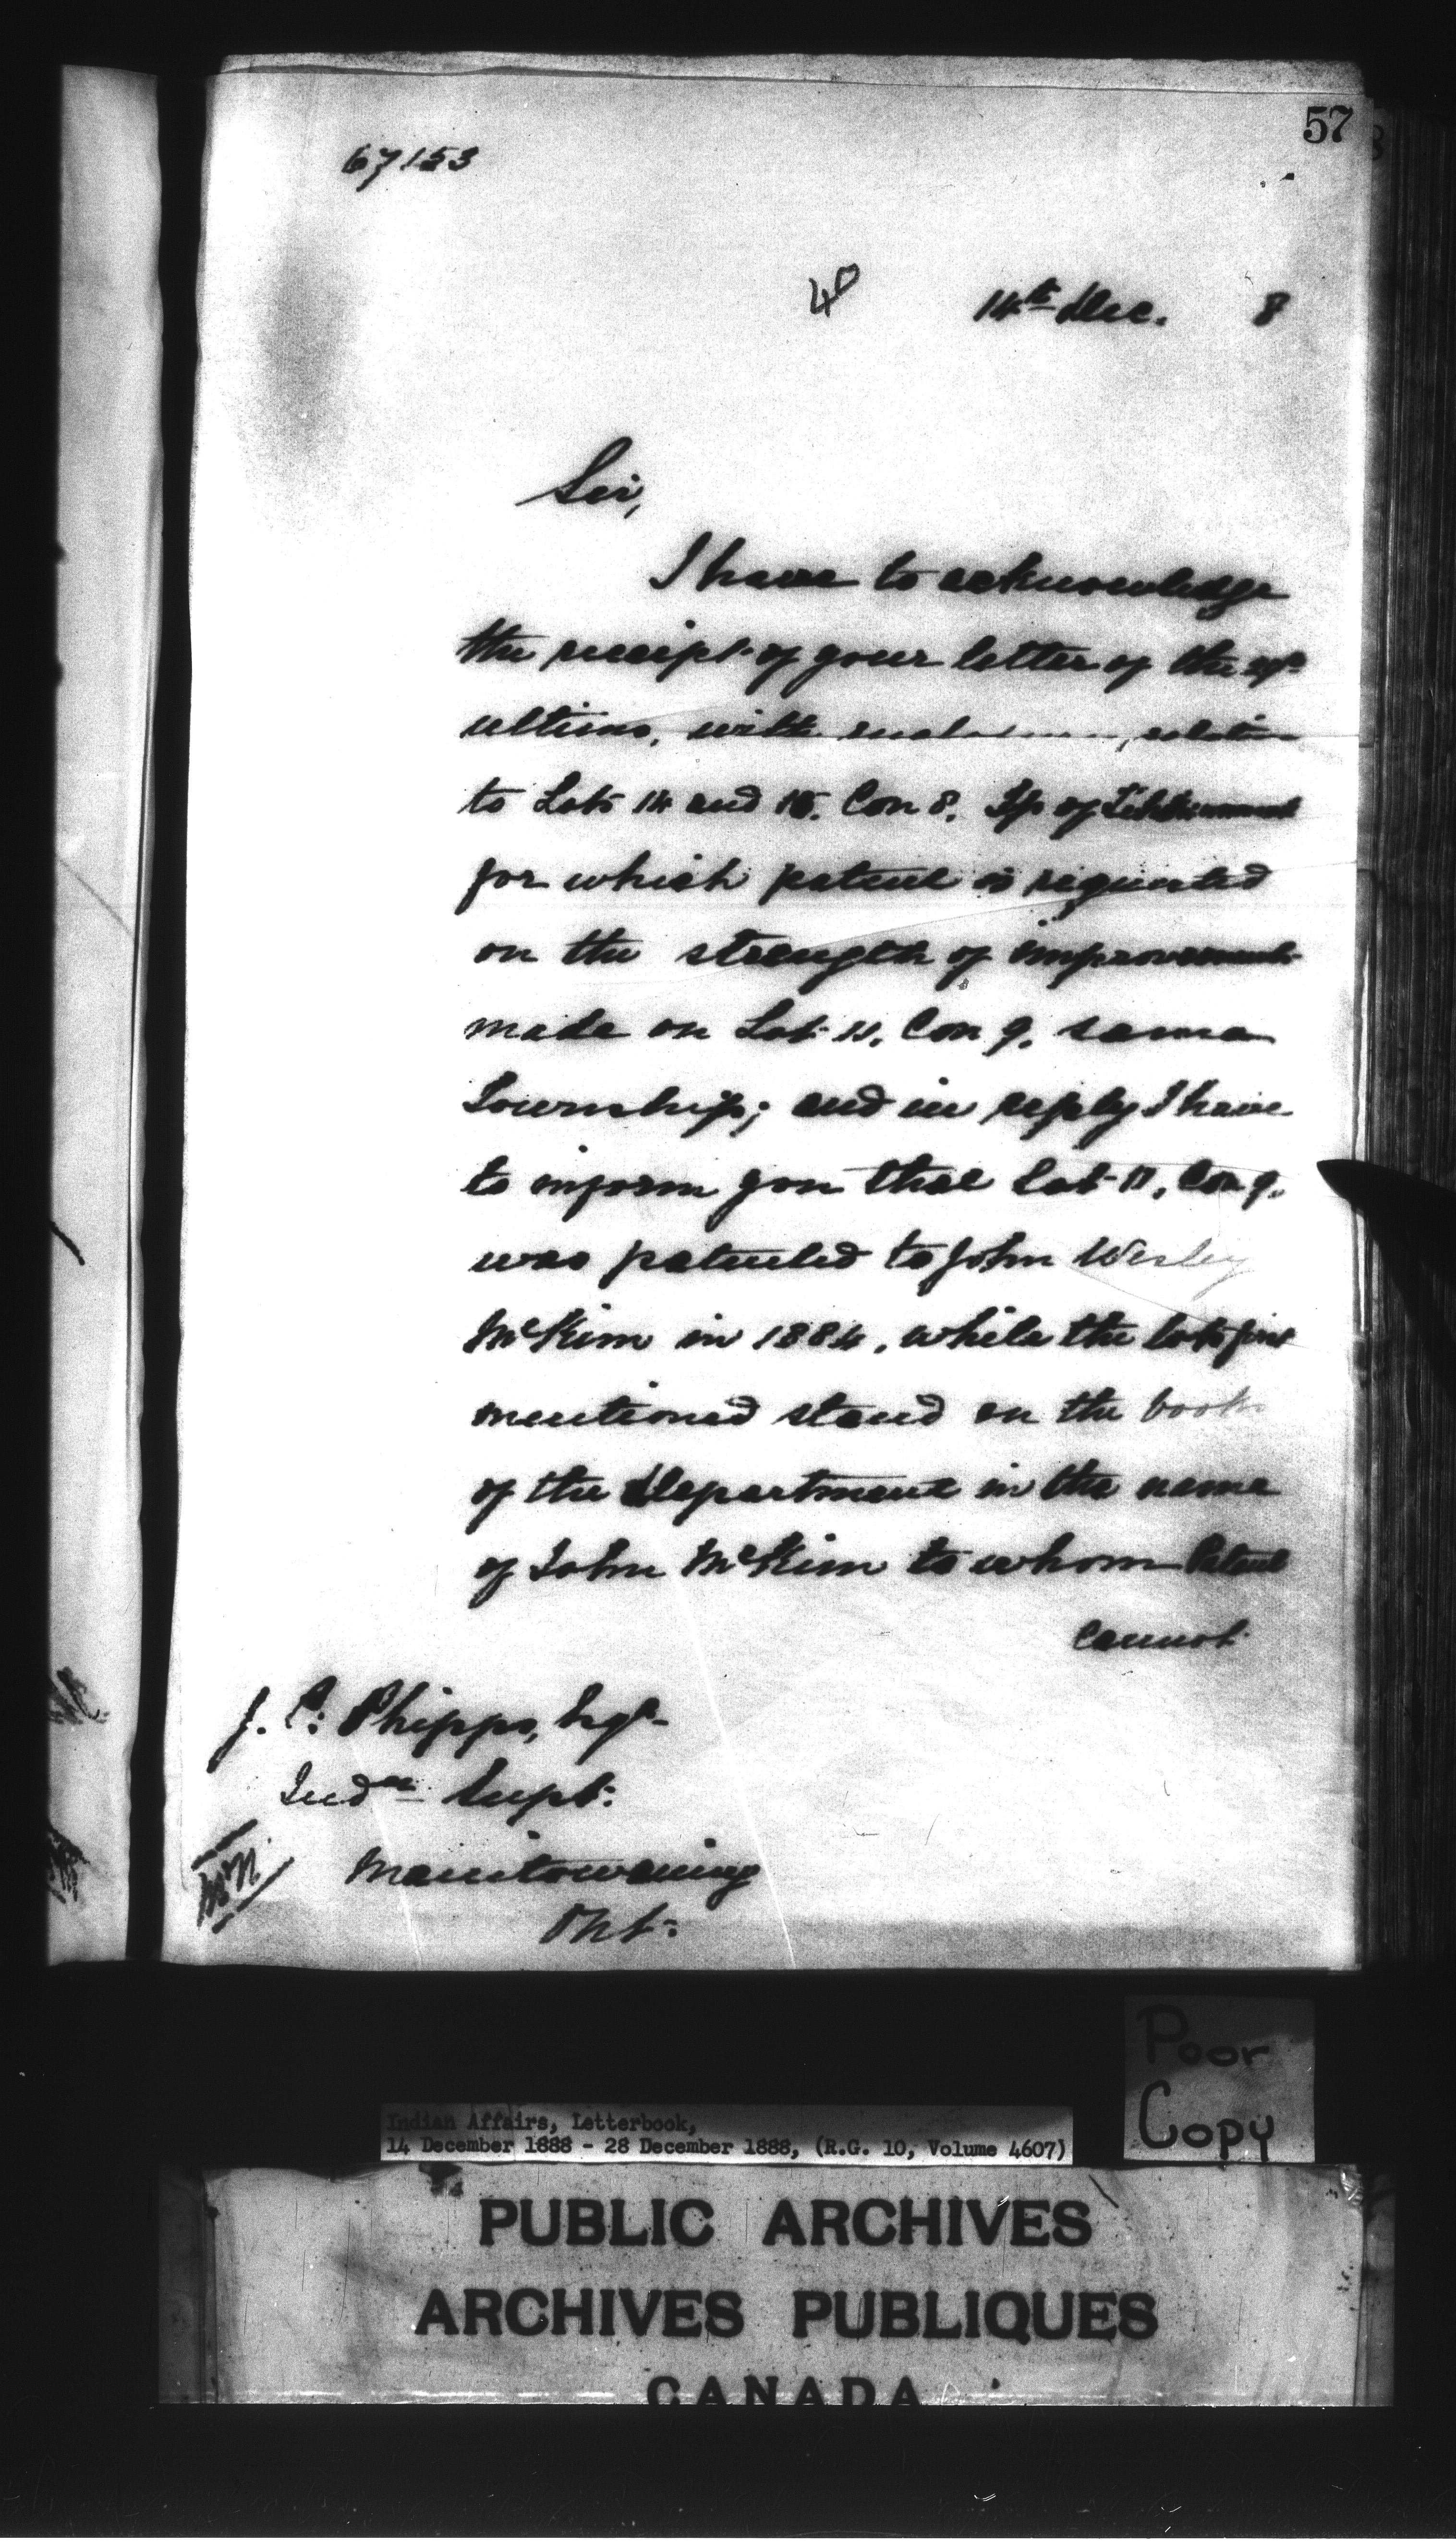 57
67153
14th Dec. 8
Sir,
I have to acknowledge
the receipt of your letter of the
ultimo, with relative
to Lots 14 and 15. Con 8. Tp of
for which patent is requested
on the strength of improvements
made on Lot 11, Con 9. same
Township; and in reply I have
to inform you that Lot 11, Con 9.
was patented to John Wesley
McKim in 1884, while the lots first
mentioned stand on the books
of the Department in the name
of John McKim to whom Patent
cannot
J. C. Phipps, Esqr
Indn Supt:
Manitowaning
Ont:
Poor
Copy
Indian Affairs, Letterbook,
14 December 1888 - 28 December 1888, (R.G. 10, Volume 4607)
PUBLIC ARCHIVES
ARCHIVES PUBLIQUES
CANADA